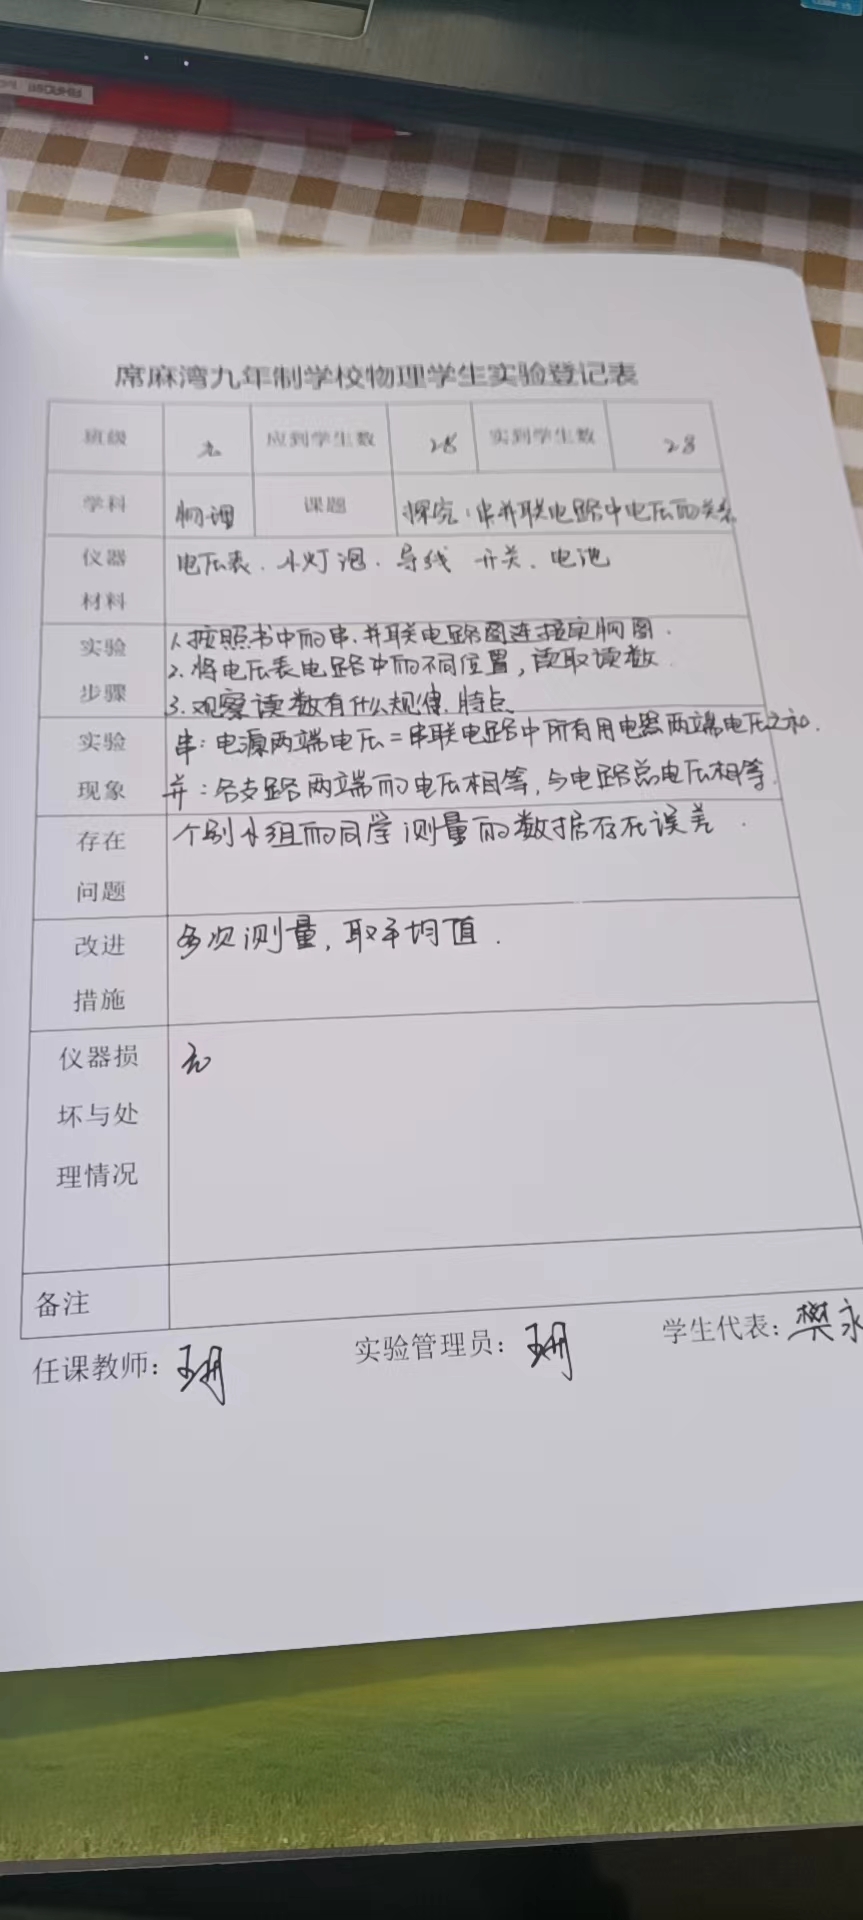 席麻湾九年制学校物理学生实验登记表
班级 九 应到学生数 28 实到学生数 28
学科 物理 课题 探究:串并联电路中电压的关系
仪器材料 电压表.小灯泡.导线 开关.电池
实验步骤 1.按照书中的串.并联电路图连接实物图.
2.将电压表电路中的不同位置,读取读数.
3.观察读数有什么规律.特点
实验现象 串:电源两端电压=串联电路中所有用电器两端电压之和.
并:各支路两端的电压相等,与电路总电压相等.
存在问题 个别小组的同学测量的数据存在误差.
改进措施 多次测量,取平均值.
仪器损坏与处理情况 无
备注
任课教师: 实验管理员: 学生代表:樊永